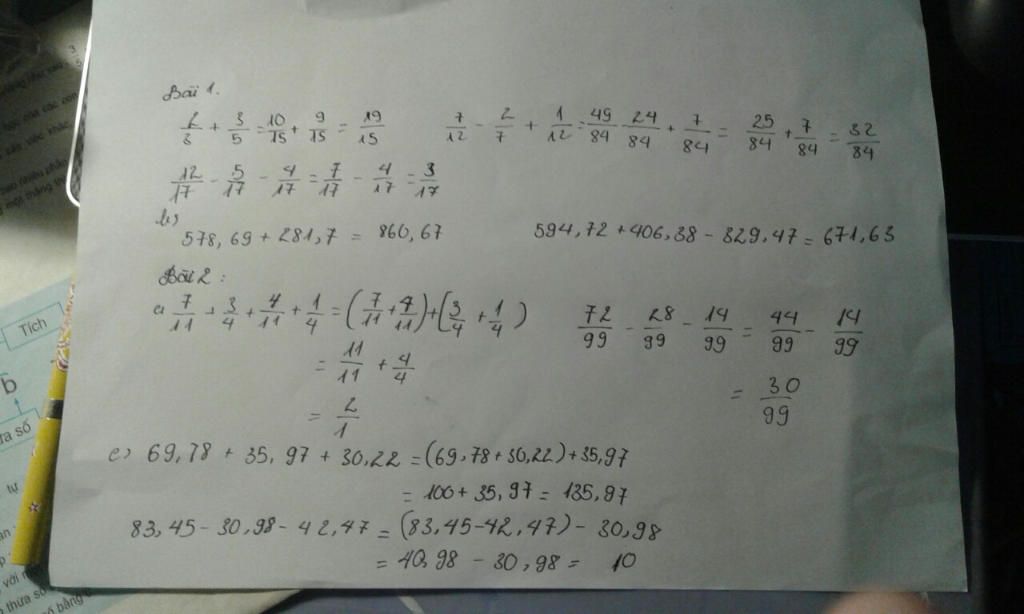 Bài 1.
2/3 + 3/5 = 10/15 + 9/15 = 19/15
7/12 - 2/7 + 1/12 = 49/84 - 24/84 + 7/84 = 25/84 + 7/84 = 32/84
12/17 - 5/17 - 4/17 = 7/17 - 4/17 = 3/17
b)
578,69 + 281,7 = 860,67
594,72 + 406,38 - 329,47 = 671,63
Bài 2:
a) 7/11 + 3/4 + 4/11 + 1/4 = (7/11 + 4/11) + (3/4 + 1/4)
= 11/11 + 4/4
= 2/1
72/99 - 28/99 - 14/99 = 44/99 - 14/99
= 30/99
c) 69,78 + 35,97 + 30,22 = (69,78 + 30,22) + 35,97
= 100 + 35,97 = 135,97
83,45 - 30,98 - 42,47 = (83,45 - 42,47) - 30,98
= 40,98 - 30,98 = 10
Tích
b
tự
thừa số